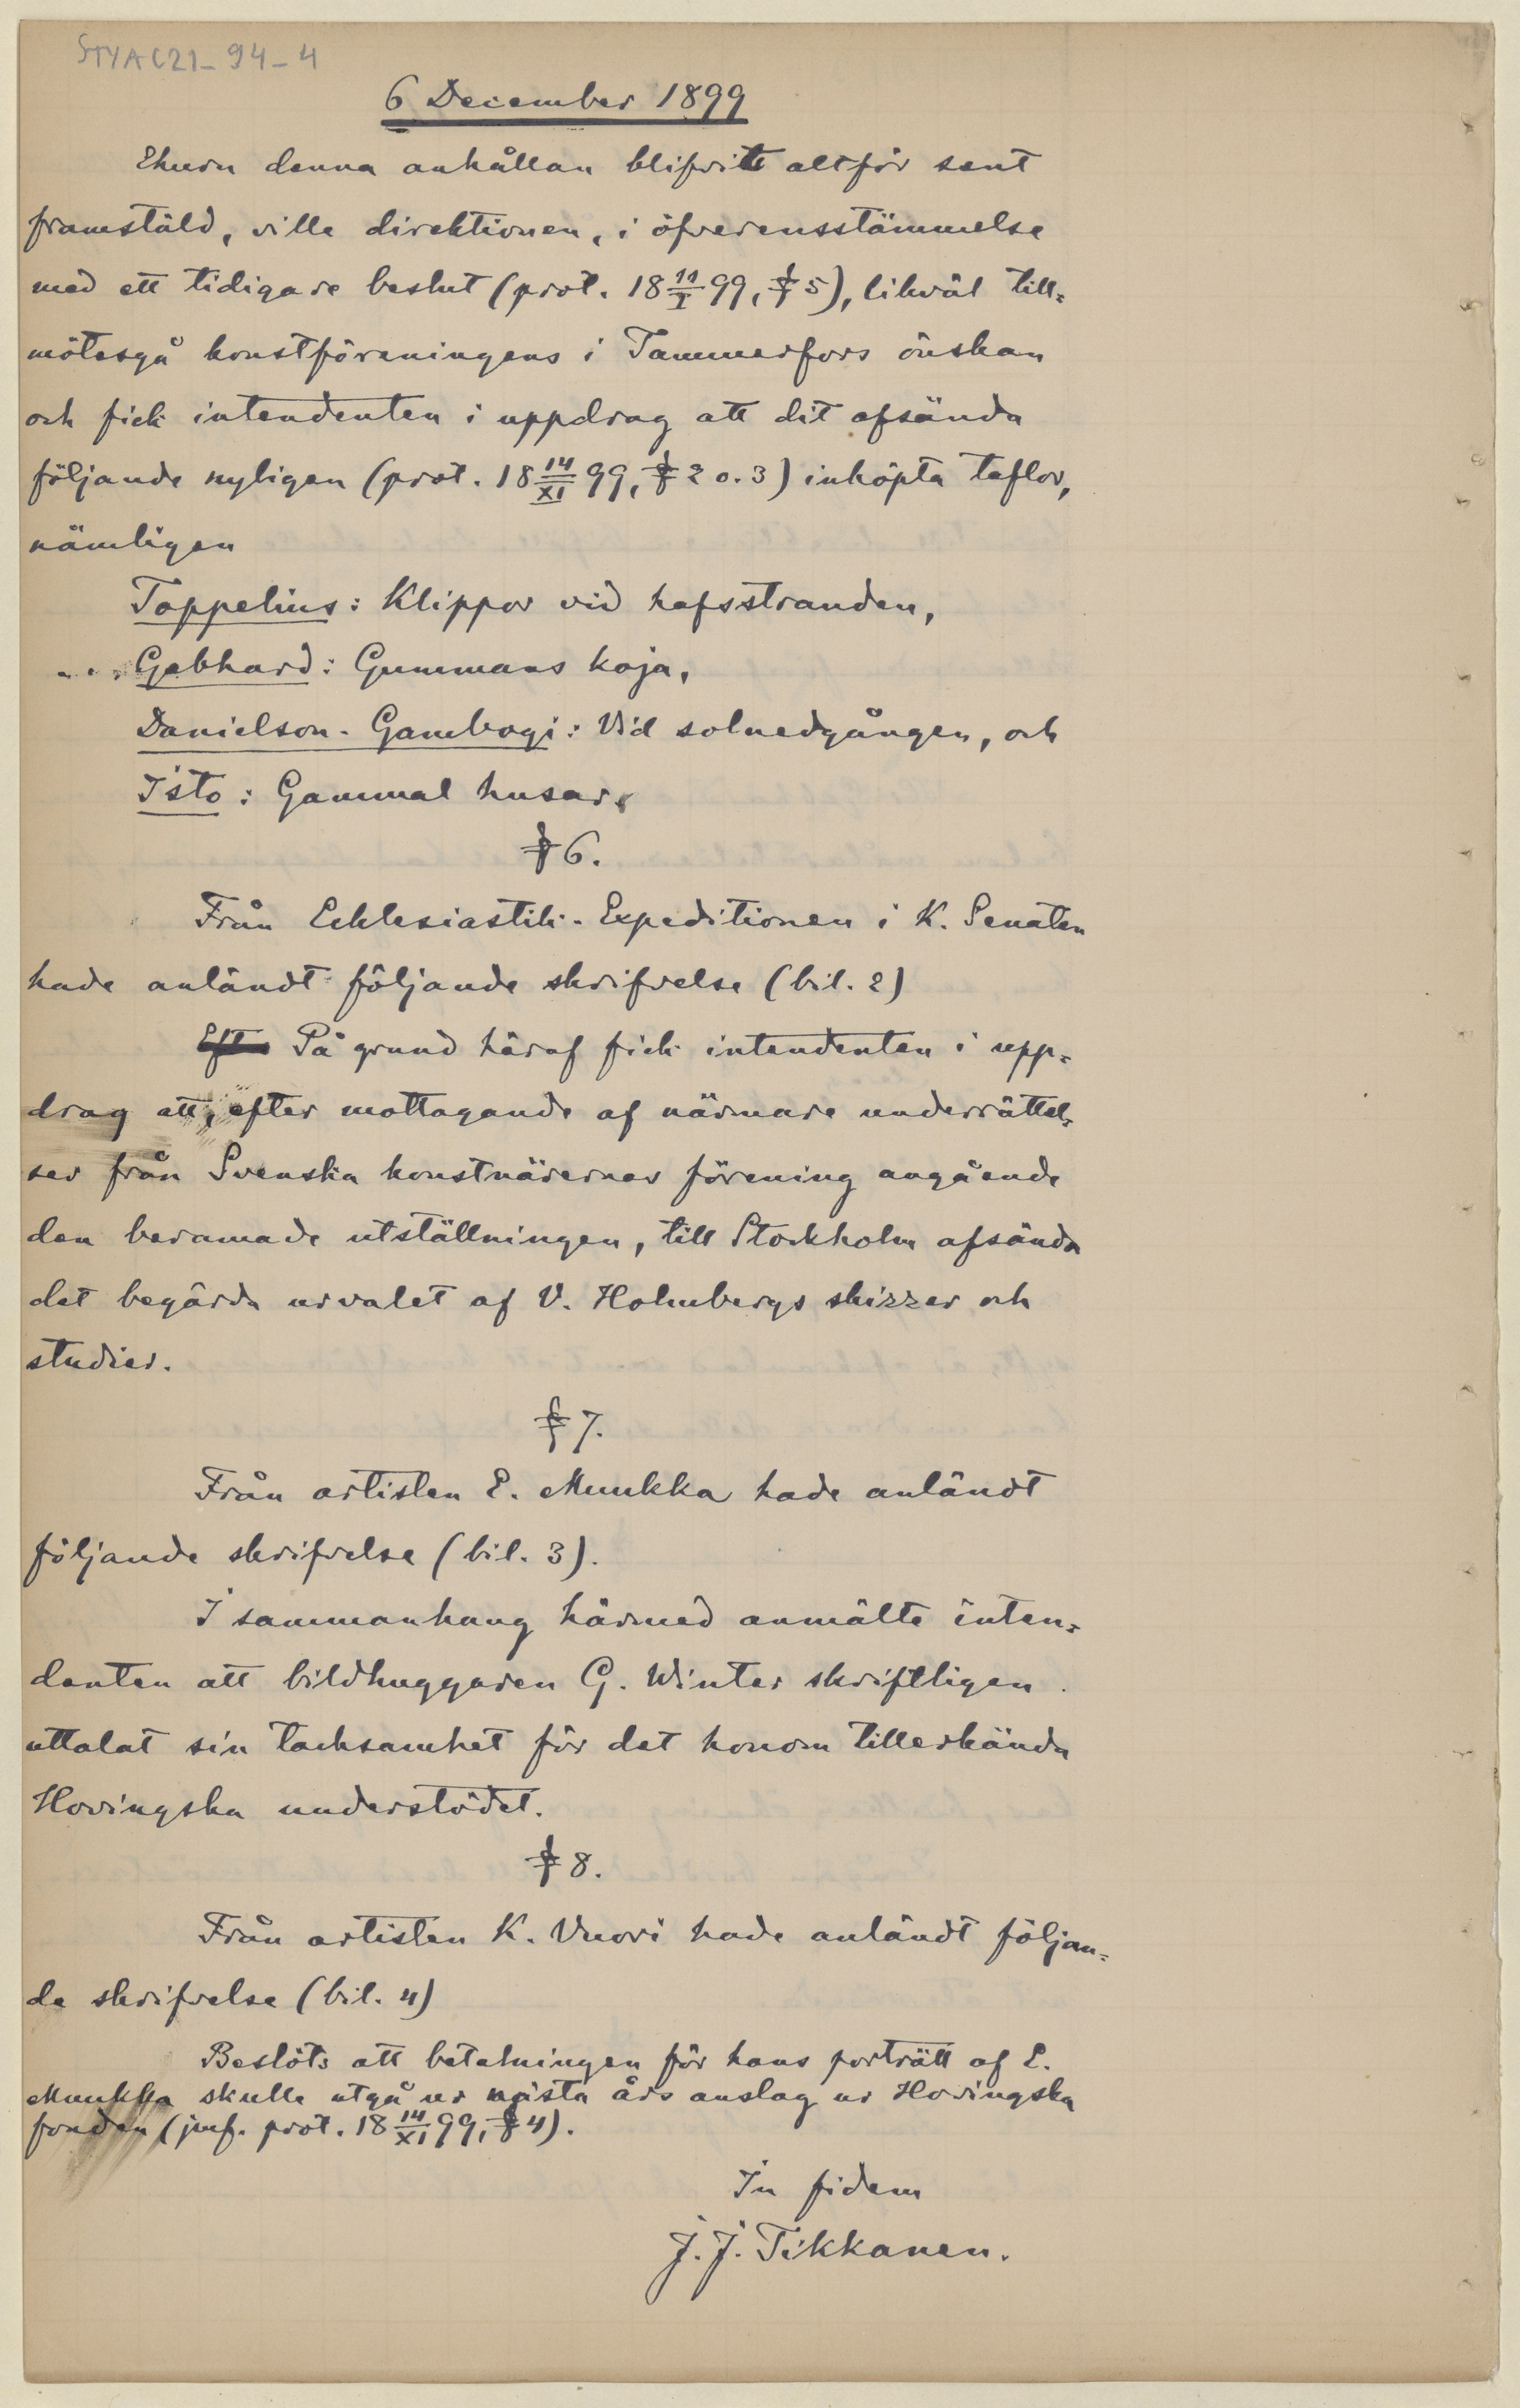 STYA C21-94-4
6 December 1899
Ehuru denna anhållan blifvit altför sent
framstäld, ville direktionen, i öfverensstämmelse
med ett tidigare beslut (prot. 18 11/I 99, § 5), likväl till=
mötesgå konstföreningens i Tammerfors önskan
och fick intendenten i uppdrag att dit afsända
följande nyligen (prot. 18 14/XI 99, § 2 o. 3) inköpta taflor,
nämligen
Toppelius: Klippor vid hafsstranden,
Gebhard: Gummans koja,
Danielson-Gambogi: Vid solnedgången, och
Isto: Gammal husar.
§ 6.
Från Ecklesiastik-Expeditionen i K. Senaten
hade anländt följande skrifvelse (bil. 2)
Efter På grund häraf fick intendenten i upp=
drag att, efter mottagande af närmare underrättel=
ser från Svenska konstnärernas förening angående
den beramade utställningen, till Stockholm afsända
det begärda urvalet af V. Holmbergs skizzer och
studier.
§ 7.
Från artisten E. Muukka hade anländt
följande skrifvelse (bil. 3).
I sammanhang härmed anmälte inten=
denten att bildhuggaren G. Winter skriftligen
uttalat sin tacksamhet för det honom tillerkända
Hovingska understödet.
§ 8.
Från artisten K. Vuori hade anländt följan=
de skrifvelse (bil. 4)
Beslöts att betalningen för hans porträtt af E.
Muukka skulle utgå ur nästa års anslag ur Hovingska
fonden (jmf. prot. 18 14/XI 99, § 4).
In fidem
J. J. Tikkanen.